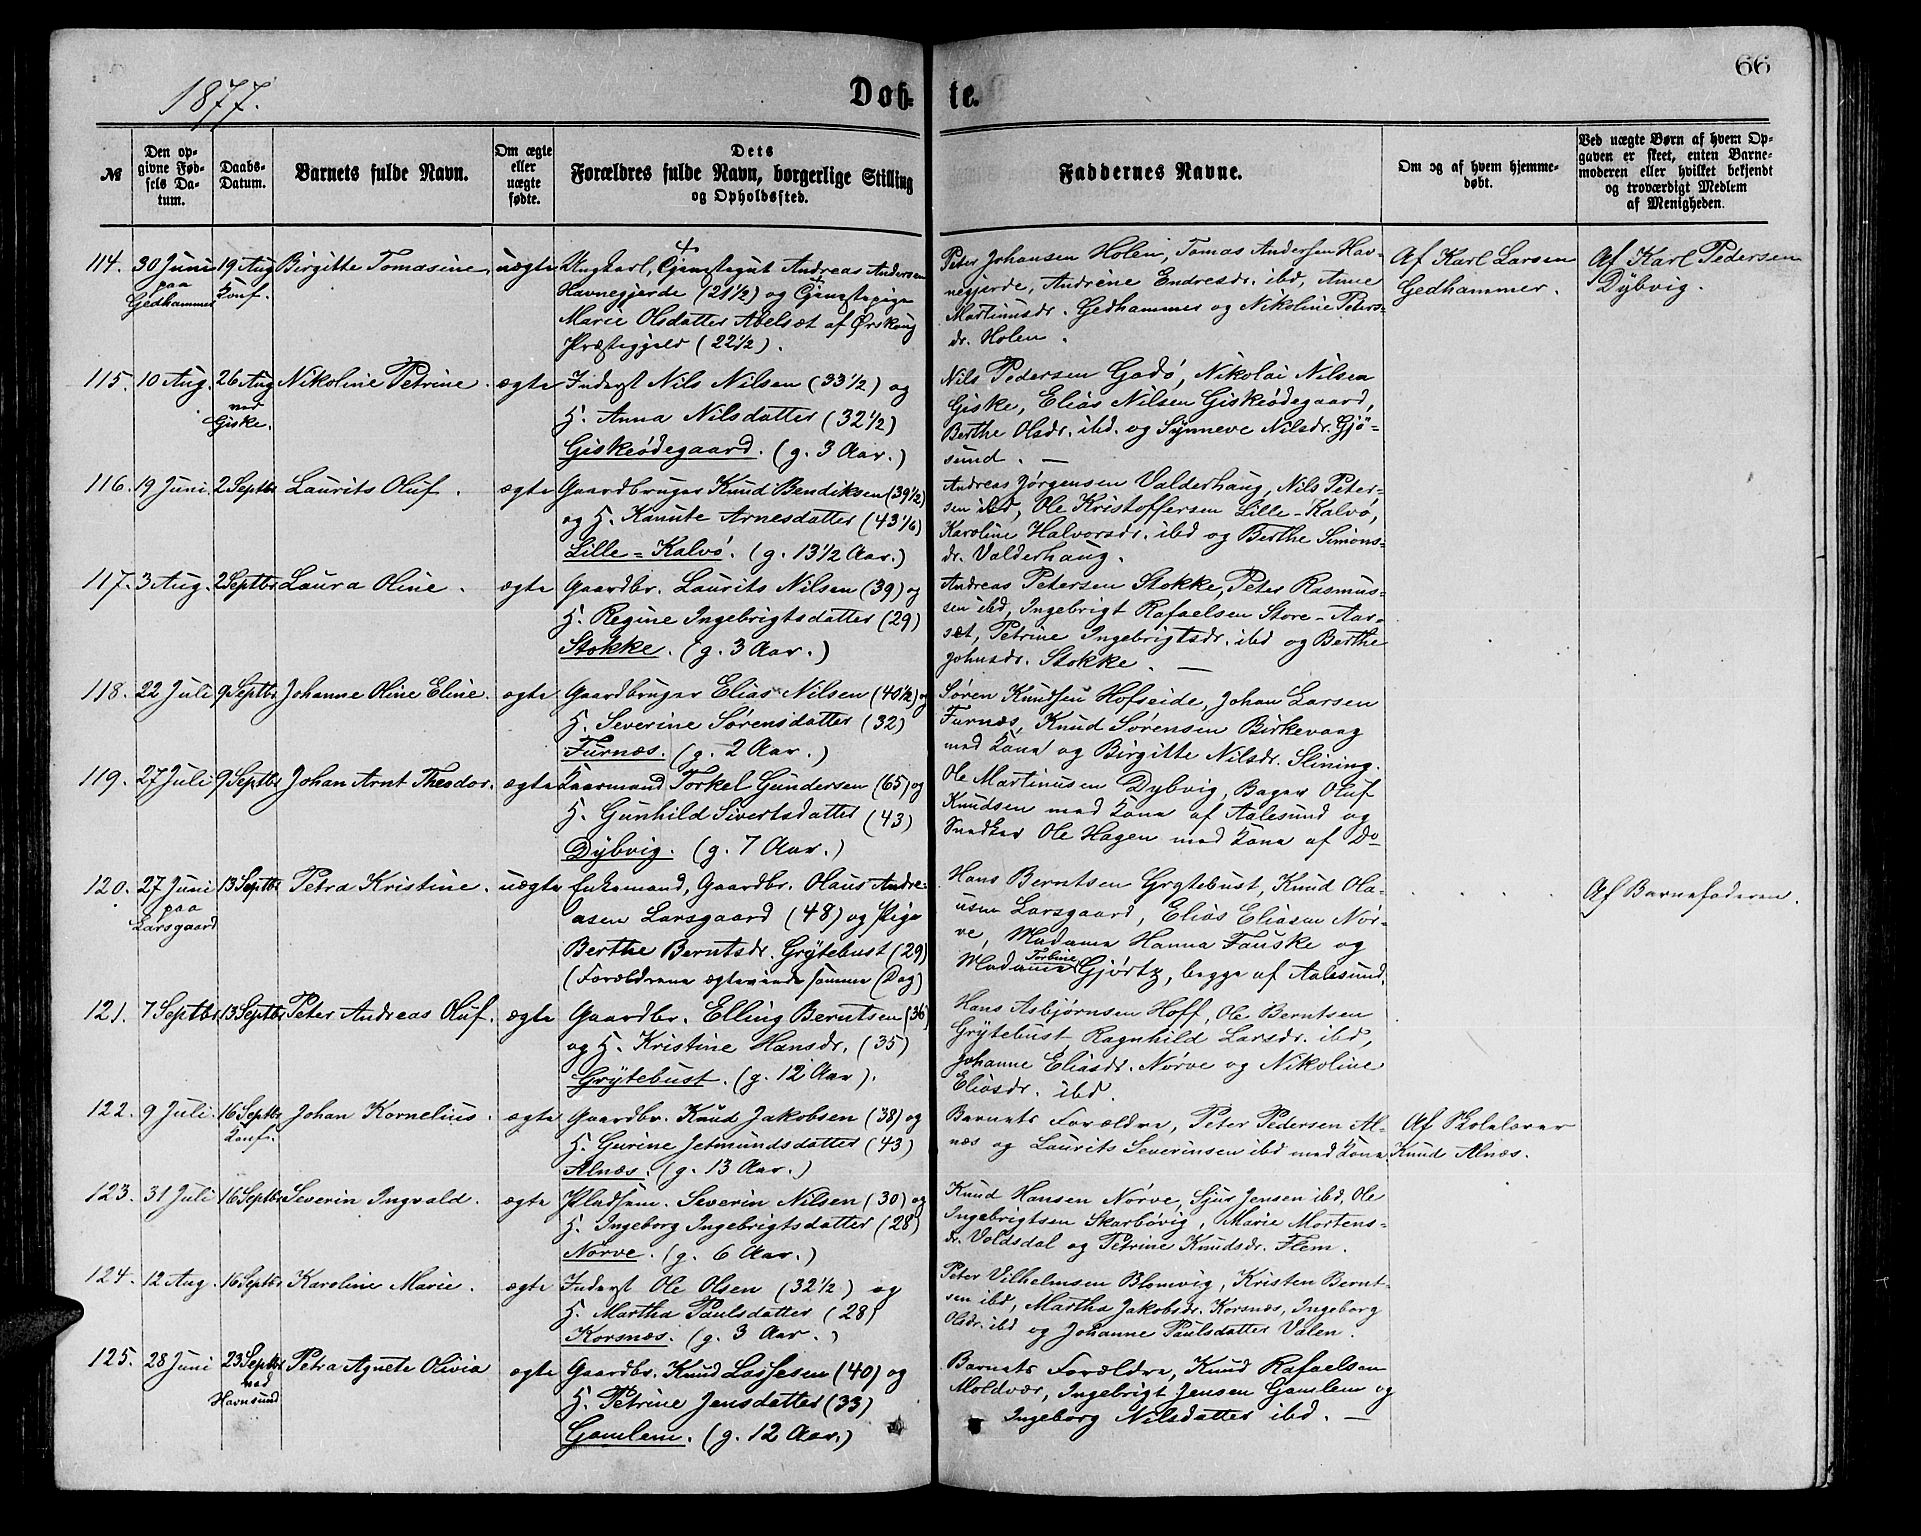 66
1877.
Døb- te.
№
Den op-
givne Fød-
sels Da-
tum.
Daabs-
Datum.
Barnets fulde Navn.
Om ægte
eller
uægte
fødte.
Dets
Forældres fulde Navn, borgerlige Stilling
og Opholdssted.
Faddernes Navne.
Om og af hvem hjemme-
døbt.
Ved uægte Børn af hvem Op-
gaven er skeet, enten Barne-
moderen eller hvilket bekjendt
og troværdigt Medlem
af Menigheden.
114. 30 Juni 19 Aug Birgitte Tomasine, uægte
paa Konf.
Gedhammer
Ungkarl, Tjenstegut Andreas Andersen
Havnegjerde (21 1/2) og Tjenstepige
Marie Olsdatter Abelsæt af Ørskoug
Præstegjeld (22 1/2).
Peter Johansen Holen, Tomas Andersen Hav-
negjerde, Andrine Endresdr. ibd, Anne
Martinusdr. Gedhammer og Nikoline Peters-
dr. Holen.
Af Karl Larsen
Gedhammer.
Af Karl Pedersen
Dybvig.
115. 10 Aug. 26 Aug Nikoline Petrine. ægte
ved
Giske.
Inderst Nils Nilsen (33 1/2) og
H. Anna Nilsdatter (32 1/2)
Giskeødegaard. (g. 3 Aar.)
Nils Pedersen Godø, Nikolai Nilsen
Giske, Elias Nilsen Giskeødegaard,
Berthe Olsdr. ibd. og Synneve Nilsdr. Gjø-
sund. —
116. 19 Juni. 2 Septbr Laurits Oluf. ægte
Gaardbruger Knud Bendiksen (39 1/2)
og H. Kanute Arnesdatter (43 1/6)
Lille-Kalvø. (g. 13 1/2 Aar.)
Andreas Jørgensen Valderhaug, Nils Peter-
sen ibd, Ole Kristoffersen Lille-Kalvø,
Karoline Halvorsdr. ibd og Berthe Simons-
dr. Valderhaug.
117. 3 Aug. 2 Septbr Laura Oline. ægte
Gaardbr. Laurits Nilsen (39) og
H. Regine Ingebrigtsdatter (29)
Stokke. (g. 3 Aar.)
Andreas Petersen Stokke, Peter Rasmus-
sen ibd, Ingebrigt Rafaelsen Store-Aar-
sæt, Petrine Ingebrigtsdr. ibd og Berthe
Johnsdr. Stokke. —
118. 22 Juli 9 Septbr Johanne Oline Eline. ægte
Gaardbruger Elias Nilsen (40 1/2) og
H. Severine Sørensdatter (32)
Furnæs. (g. 2 Aar.)
Søren Knudsen Hofseide, Johan Larsen
Furnæs, Knud Sørensen Birkevaag
med Kone og Birgitte Nilsdr. Slining.
119. 27 Juli 9 Septbr Johan Arnt Theodor. ægte
Kaarmand Torkel Gundersen (65) og
H. Gunhild Sivertsdatter (43)
Dybvig. (g. 7 Aar.)
Ole Martinusen Dybvig, Bager Oluf
Knudsen med Kone af Aalesund og
Snedker Ole Hagen med Kone af Do-
120. 27 Juni 13 Septbr Petra Kristine. uægte
paa
Larsgaard
Enkemand, Gaardbr. Olaus Andre-
asen Larsgaard (48) og Pige
Berthe Berntsdr. Grytebust (29)
(Forældrene ægteviede samme Dag)
Hans Berntsen Grytebust, Knud Ola-
usen Larsgaard, Elias Eliasen Nør-
ve, Madame Hanna Fauske og
Madame Torbine Gjørtz, begge af Aalesund.
Af Barnefaderen.
121. 7 Septbr 13 Septbr Peter Andreas Oluf. ægte
Gaardbr. Elling Berntsen (36)
og H. Kristine Hansdr. (35)
Grytebust. (g. 12 Aar).
Hans Asbjørnsen Hoff, Ole Berntsen
Grytebust, Ragnhild Larsdr. ibd,
Johanne Eliasdr. Nørve og Nikoline
Eliasdr. ibd.
122. 9 Juli. 16 Septbr Johan Kornelius. ægte
Konf.
Gaardbr. Knud Jakobsen (38) og
H. Gurine Jetmundsdatter (43)
Alnæs. (g. 13 Aar.)
Barnets Forældre, Peter Pedersen Al-
næs og Laurits Severinsen ibd med Kone.
Af Skolelærer
Knud Alnæs.
123. 31 Juli 16 Septbr Severin Ingvald. ægte
Pladsem. Severin Nilsen (30) og
H. Ingeborg Ingebrigtsdatter (28)
Nørve. (g. 6 Aar.)
Knud Hansen Nørve, Sjur Jensen ibd, Ole
Ingebrigtsen Skarbøvig, Marie Mortens-
dr. Voldsdal og Petrine Knudsdr. Flem.
124. 12 Aug. 16 Septbr Karoline Marie. ægte
Inderst Ole Olsen (32 1/2) og
H. Martha Paulsdatter (28)
Korsnæs. (g. 3 Aar.)
Peter Vilhelmsen Blomvig, Kristen Bernt-
sen ibd, Martha Jakobsdr. Korsnæs, Ingeborg
Olsdr. ibd og Johanne Paulsdatter Valen.
125. 28 Juni 23 Septbr Petra Agnete Olivia ægte
ved
Havnsund
Gaardbr. Knud Lassesen (40) og
H. Petrine Jensdatter (33)
Gamlem. (g. 12 Aar.)
Barnets Forældre, Knud Rafaelsen
Moldvær, Ingebrigt Jensen Gamlem og
Ingeborg Nilsdatter ibd. —